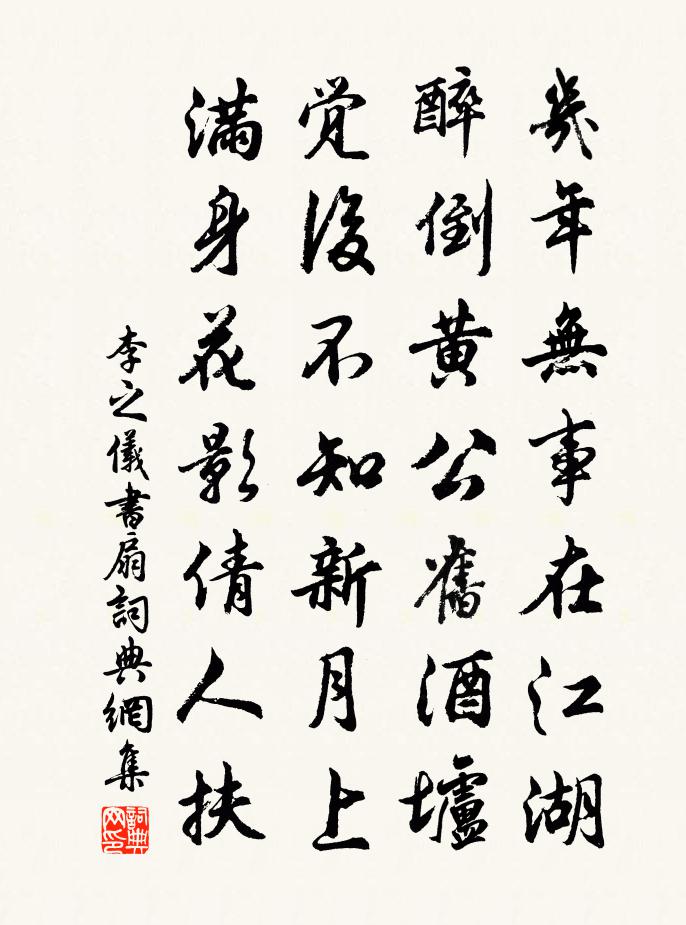 幾年無事在江湖
醉倒黃公舊酒壚
覚後不知新月上
滿身花影倩人扶
李之儀書扇詞典網集
詞典网印